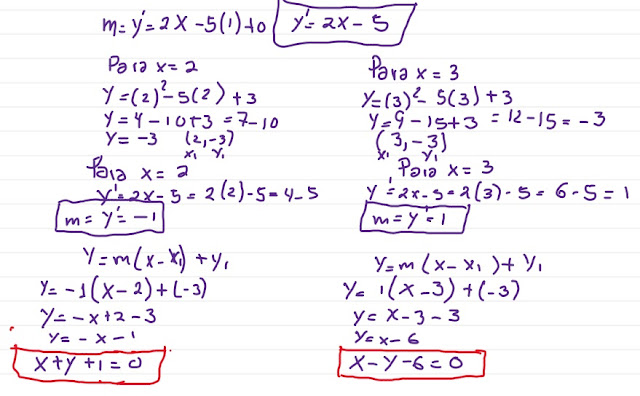 m=y'=2x-5(1)+0 y'=2x-5
Para x=2
y=(2)²-5(2)+3
y=4-10+3=7-10
y=-3 (2,-3)
x₁ y₁
Para x=2
y'=2x-5=2(2)-5=4-5
m=y'=-1
y=m(x-x₁)+y₁
y=-1(x-2)+(-3)
y=-x+2-3
y=-x-1
x+y+1=0
Para x=3
y=(3)²-5(3)+3
y=9-15+3=12-15=-3
(3,-3)
x₁ y₁
Para x=3
y'=2x-5=2(3)-5=6-5=1
m=y'=1
y=m(x-x₁)+y₁
y=1(x-3)+(-3)
y=x-3-3
y=x-6
x-y-6=0